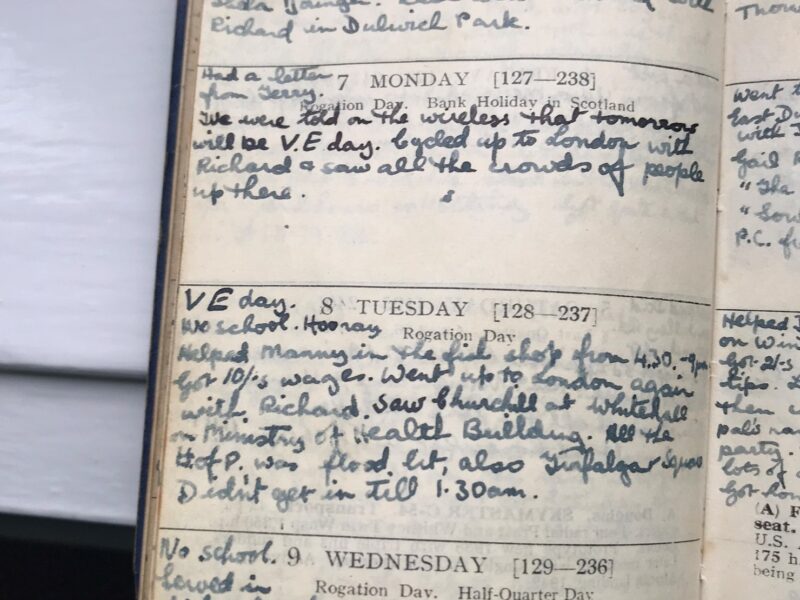 Richard in Dulwich Park.
Had a letter
from Terry.
7 MONDAY [127—238]
Rogation Day. Bank Holiday in Scotland
We were told on the wireless that tomorrow
will be V.E day. Cycled up to London with
Richard & saw all the crowds of people
up there.
V E day.
8 TUESDAY [128—237]
No school. Hooray
Rogation Day
Helped Manny in the fish shop from 4.30.-9pm
Got 10/-s wages. Went up to London again
with Richard. Saw Churchill at Whitehall
on Ministry of Health Building. All the
H.of P. was flood lit, also Trafalgar Square
Didn't get in till 1.30am.
No school.
9 WEDNESDAY [129—236]
Rogation Day. Half-Quarter Day
Went
East Du
with
Gail
P.C.
Helped
on Win
Got 2/-s
tips.
then
pal's
party.
lots of
Got hom
(A) F
seat.
U.S.
175 h
being